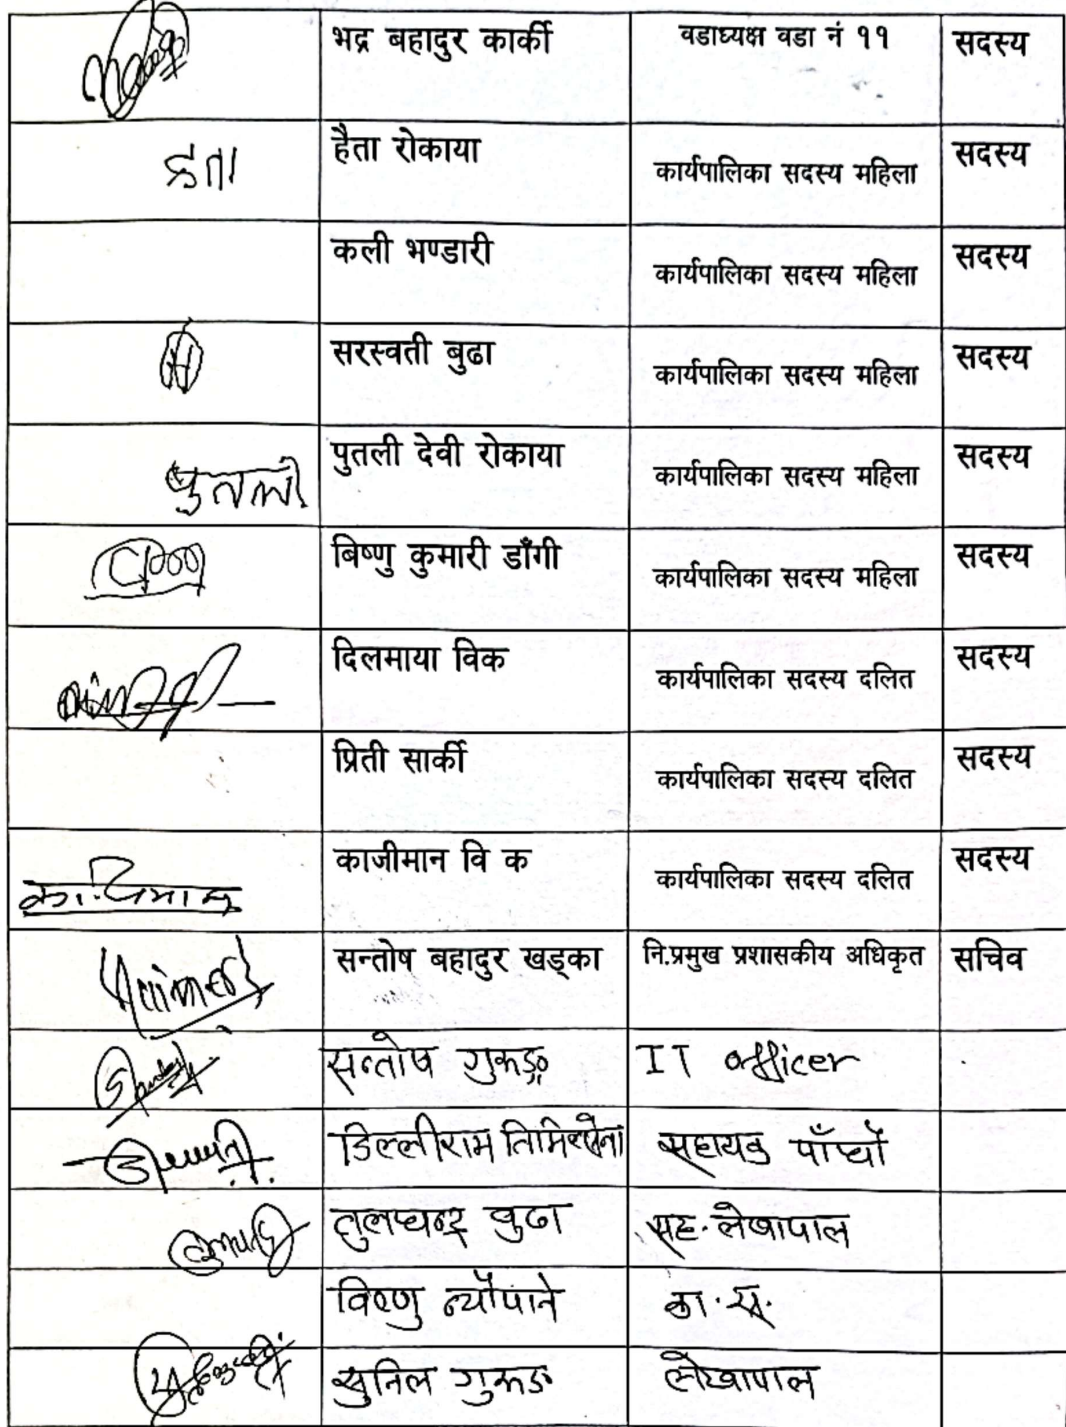 भद्र बहादुर कार्की वडाध्यक्ष वडा नं ११ सदस्य
हैता हैता रोकाया कार्यपालिका सदस्य महिला सदस्य
कली भण्डारी कार्यपालिका सदस्य महिला सदस्य
सरस्वती बुढा कार्यपालिका सदस्य महिला सदस्य
पुतली पुतली देवी रोकाया कार्यपालिका सदस्य महिला सदस्य
बिष्णु कुमारी डाँगी कार्यपालिका सदस्य महिला सदस्य
दिलमाया विक कार्यपालिका सदस्य दलित सदस्य
प्रिती सार्की कार्यपालिका सदस्य दलित सदस्य
काजीमान वि क कार्यपालिका सदस्य दलित सदस्य
सन्तोष बहादुर खड्का नि.प्रमुख प्रशासकीय अधिकृत सचिव
सन्तोष गुरुङ IT officer
डिल्लीराम तिमिल्सेना सहायक पाँचौ
तुलचन्द्र वुढा सह. लेखापाल
विष्णु न्यौपाने का. स.
सुनिल गुरुङ लेखापाल